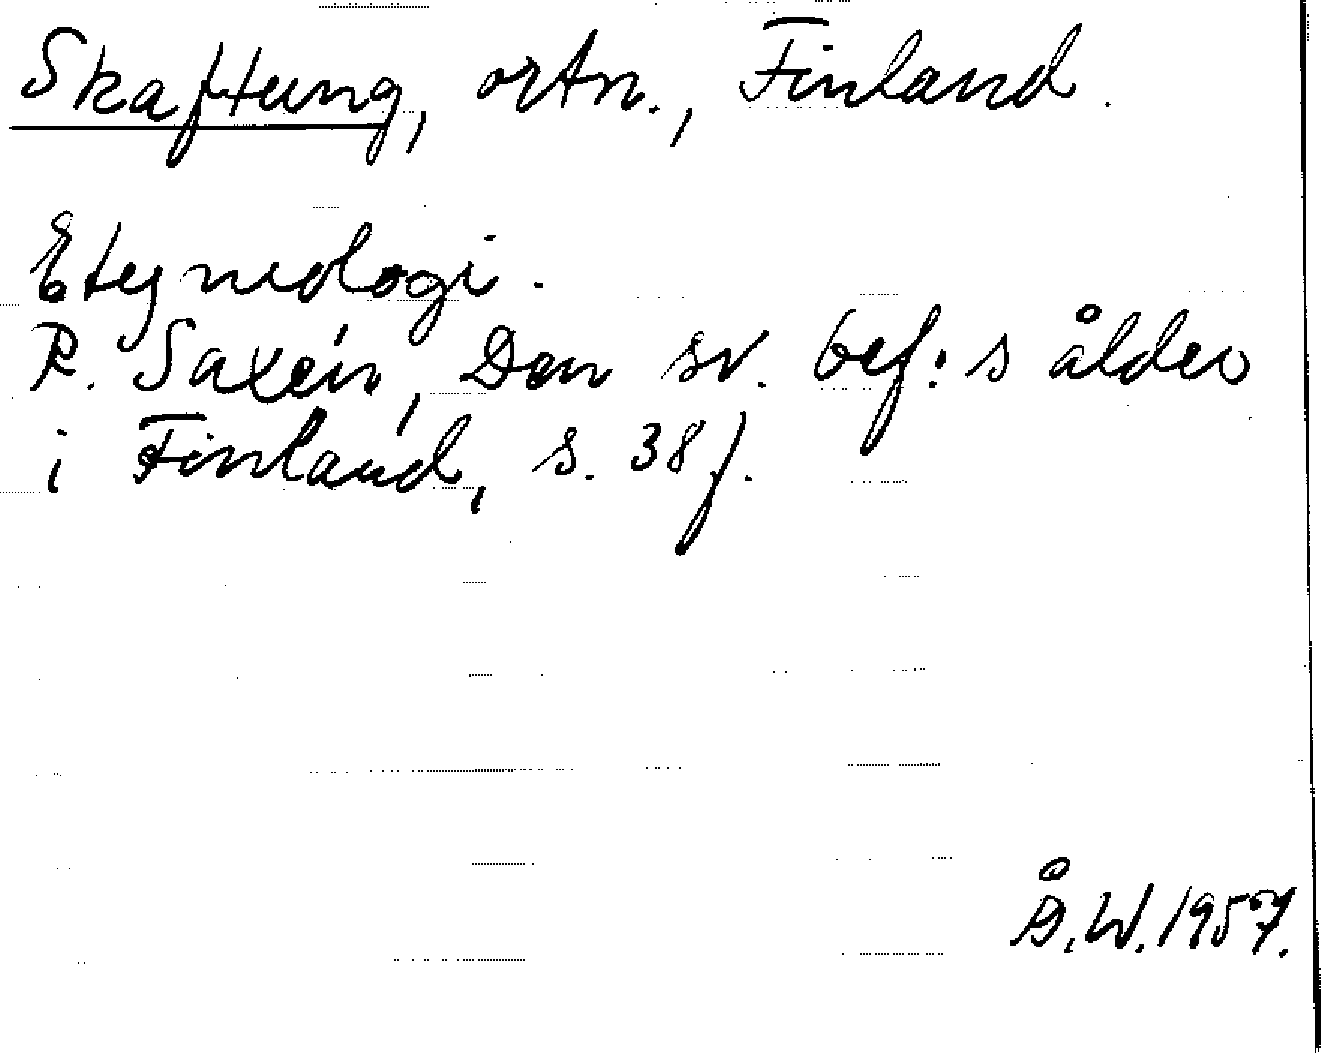 Skaftung, ortn., Finland.
Etymologi.
R. Saxén, Den sv. bef:s ålder
i Finland, s. 38 f.
Å.W. 1957.